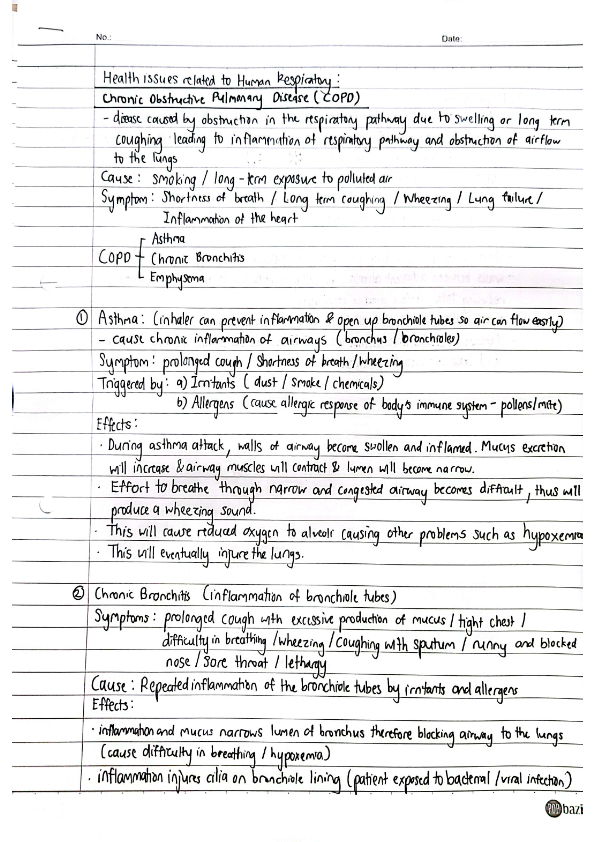 No.: Date:
Health issues related to Human Respiratory :
Chronic Obstructive Pulmonary Disease (COPD)
- disease caused by obstruction in the respiratory pathway due to swelling or long term
coughing leading to inflammation of respiratory pathway and obstruction of airflow
to the lungs
Cause : smoking / long-term exposure to polluted air
Symptom : Shortness of breath / Long term coughing / Wheezing / Lung failure /
Inflammation of the heart
Asthma
COPD Chronic Bronchitis
Emphysema
① Asthma : (inhaler can prevent inflammation & open up bronchiole tubes so air can flow easily)
- cause chronic inflammation of airways (bronchus / bronchioles)
Symptom : prolonged cough / Shortness of breath / wheezing
Triggered by : a) Irritants ( dust / smoke / chemicals)
b) Allergens (cause allergic response of body's immune system - pollens/mite)
Effects :
· During asthma attack, walls of airway become swollen and inflamed. Mucus excretion
will increase & airway muscles will contract & lumen will become narrow.
· Effort to breathe through narrow and congested airway becomes difficult, thus will
produce a wheezing sound.
· This will cause reduced oxygen to alveoli causing other problems such as hypoxemia
· This will eventually injure the lungs.
② Chronic Bronchitis (inflammation of bronchiole tubes)
Symptoms : prolonged cough with excessive production of mucus / tight chest /
difficulty in breathing / wheezing / coughing with sputum / runny and blocked
nose / sore throat / lethargy
Cause : Repeated inflammation of the bronchiole tubes by irritants and allergens
Effects :
· inflammation and mucus narrows lumen of bronchus therefore blocking airway to the lungs
(cause difficulty in breathing / hypoxemia)
· inflammation injures cilia on bronchiole lining (patient exposed to bacterial / viral infection)
POP bazi